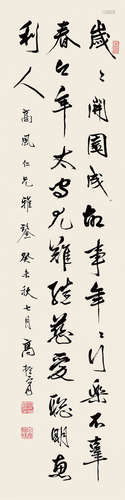 歲〻開園成故事年〻行樂不辜
春今年太守尤難繼慈愛聰明惠
利人
高風仁兄雅鑒 癸未秋七月 高振霄